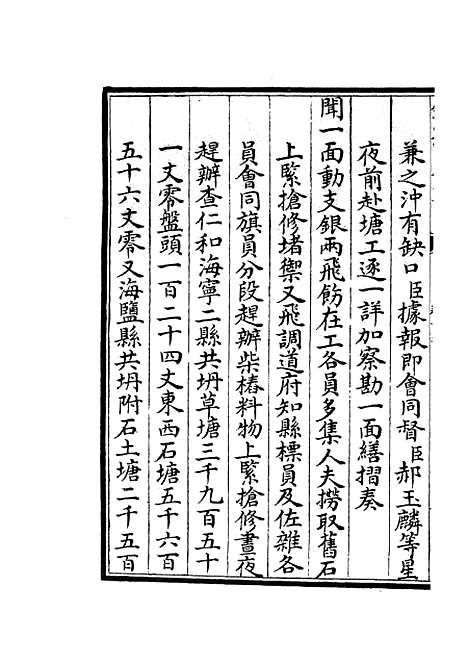 兼之沖有缺口臣據報即會同督臣郝玉麟等星
夜前赴塘工逐一詳加察勘一面繕摺奏
聞一面動支銀兩飛飭在工各員多集人夫撈取舊石
上緊搶修堵禦又飛調道府知縣標員及佐雜各
員會同旗員分段趕辦柴樁料物上緊搶修晝夜
趕辦查仁和海寧二縣共坍草塘三千九百五十
一丈零盤頭一百二十四丈東西石塘五千六百
五十六丈零又海鹽縣共坍附石土塘二千五百